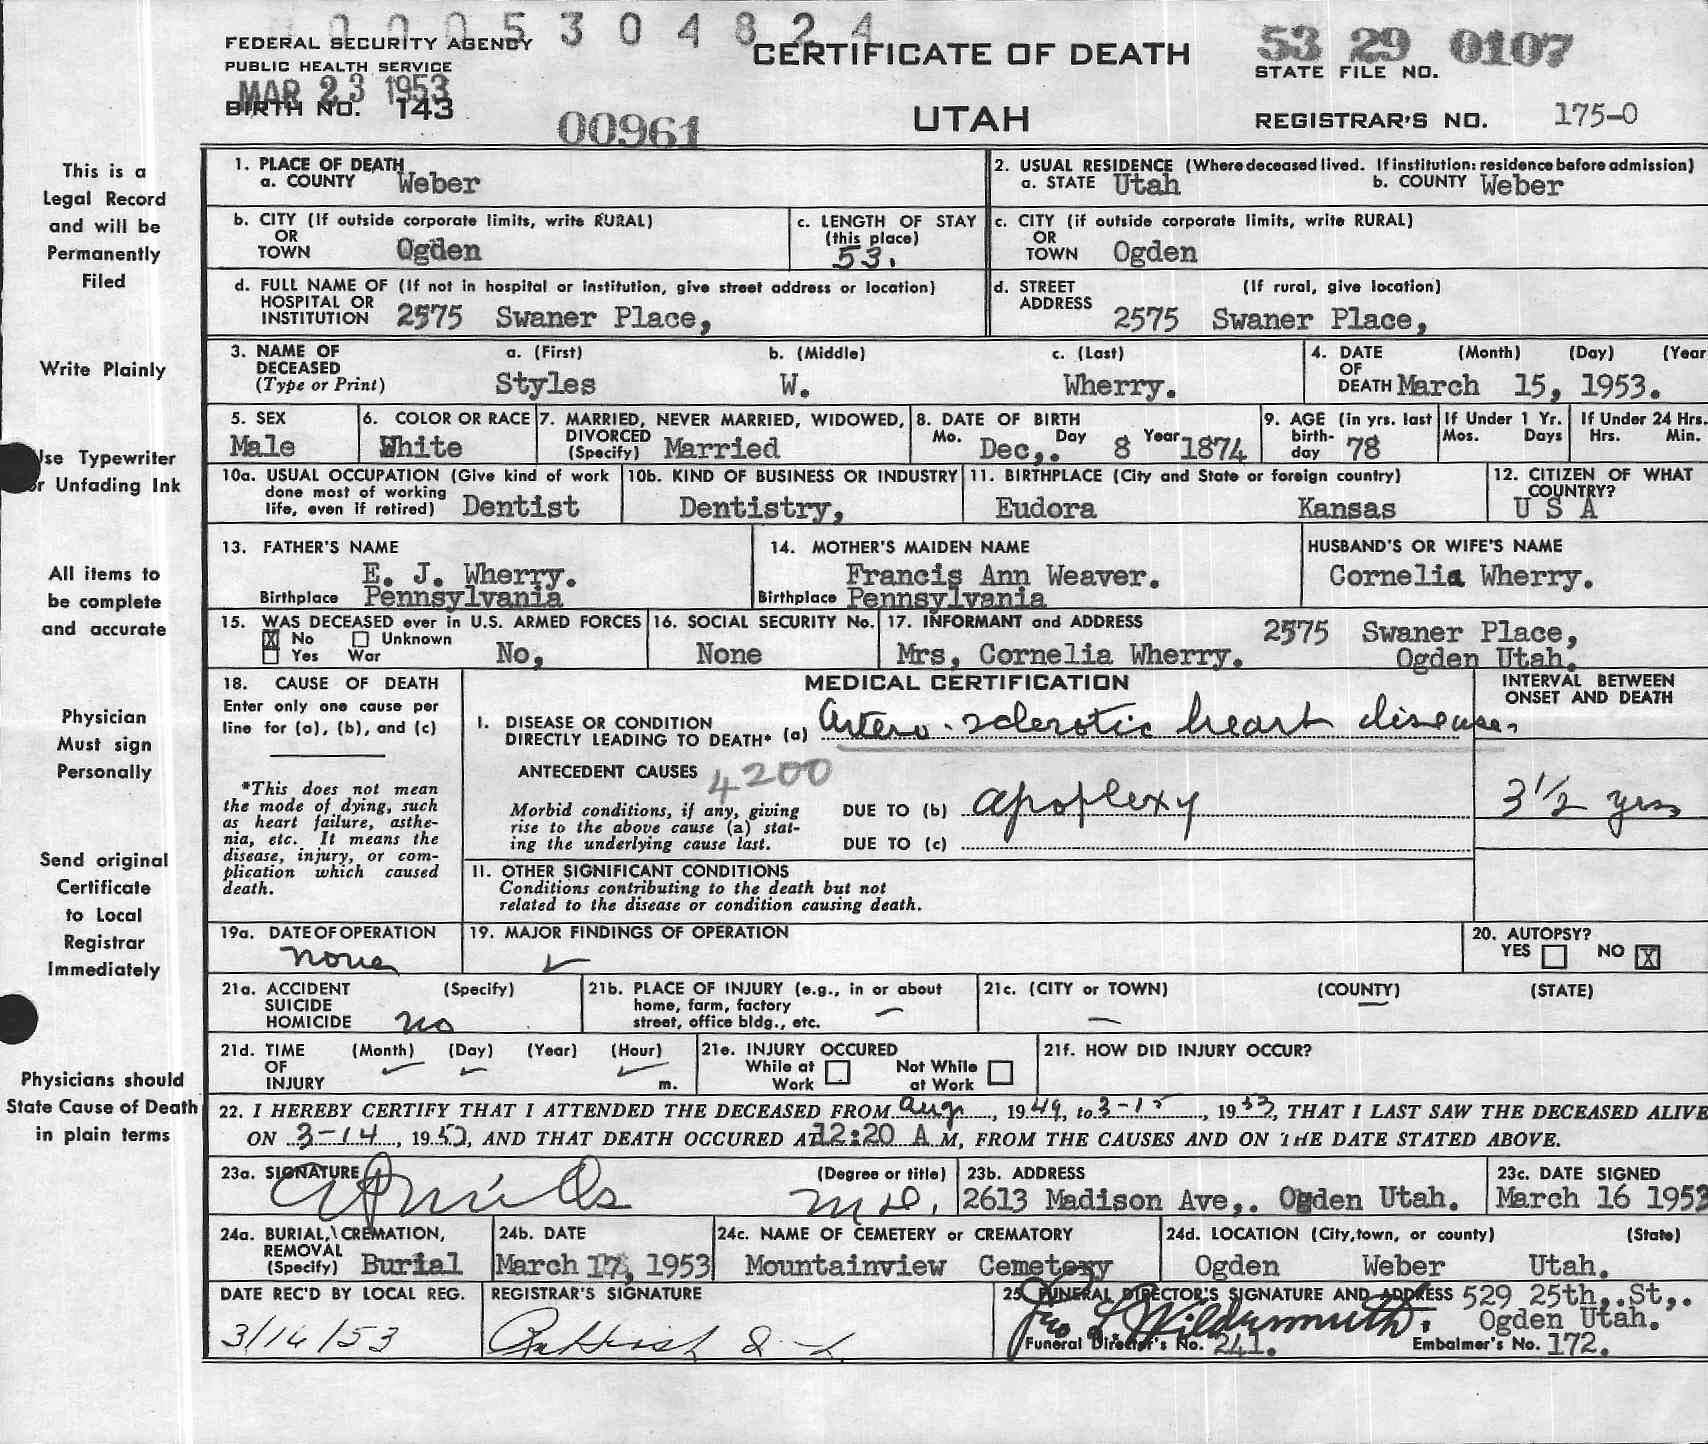 0005304824
FEDERAL SECURITY AGENCY
PUBLIC HEALTH SERVICE
MAR 23 1953
BIRTH NO. 143
00961
CERTIFICATE OF DEATH
UTAH
53 29 0107
STATE FILE NO.
REGISTRAR'S NO. 175-0
This is a
Legal Record
and will be
Permanently
Filed
Write Plainly
Use Typewriter
or Unfading Ink
All items to
be complete
and accurate
Physician
Must sign
Personally
Send original
Certificate
to Local
Registrar
Immediately
Physicians should
State Cause of Death
in plain terms
1. PLACE OF DEATH
a. COUNTY Weber
2. USUAL RESIDENCE (Where deceased lived. If institution: residence before admission)
a. STATE Utah b. COUNTY Weber
b. CITY (If outside corporate limits, write RURAL)
OR
TOWN Ogden
c. LENGTH OF STAY
(this place)
53.
c. CITY (if outside corporate limits, write RURAL)
OR
TOWN Ogden
d. FULL NAME OF (If not in hospital or institution, give street address or location)
HOSPITAL OR
INSTITUTION 2575 Swaner Place,
d. STREET (If rural, give location)
ADDRESS
2575 Swaner Place,
3. NAME OF
DECEASED
(Type or Print)
a. (First) b. (Middle) c. (Last)
Styles W. Wherry.
4. DATE (Month) (Day) (Year
OF
DEATH March 15, 1953.
5. SEX
Male
6. COLOR OR RACE
White
7. MARRIED, NEVER MARRIED, WIDOWED,
DIVORCED
(Specify) Married
8. DATE OF BIRTH
Mo. Day Year
Dec,. 8 1874
9. AGE (in yrs. last
birth-
day 78
If Under 1 Yr.
Mos. Days
If Under 24 Hrs.
Hrs. Min.
10a. USUAL OCCUPATION (Give kind of work
done most of working
life, even if retired) Dentist
10b. KIND OF BUSINESS OR INDUSTRY
Dentistry,
11. BIRTHPLACE (City and State or foreign country)
Eudora Kansas
12. CITIZEN OF WHAT
COUNTRY?
U S A
13. FATHER'S NAME
E. J. Wherry.
Birthplace Pennsylvania
14. MOTHER'S MAIDEN NAME
Francis Ann Weaver.
Birthplace Pennsylvania
HUSBAND'S OR WIFE'S NAME
Cornelia Wherry.
15. WAS DECEASED ever in U.S. ARMED FORCES
X No Unknown
Yes War No,
16. SOCIAL SECURITY No.
None
17. INFORMANT and ADDRESS 2575 Swaner Place,
Mrs, Cornelia Wherry. Ogden Utah.
18. CAUSE OF DEATH
Enter only one cause per
line for (a), (b), and (c)
*This does not mean
the mode of dying, such
as heart failure, asthe-
nia, etc. It means the
disease, injury, or com-
plication which caused
death.
MEDICAL CERTIFICATION
INTERVAL BETWEEN
ONSET AND DEATH
I. DISEASE OR CONDITION
DIRECTLY LEADING TO DEATH* (a) Artero-sclerotic heart disease.
ANTECEDENT CAUSES 4200
Morbid conditions, if any, giving
rise to the above cause (a) stat-
ing the underlying cause last.
DUE TO (b) apoplexy 3 1/2 yrs
DUE TO (c)
11. OTHER SIGNIFICANT CONDITIONS
Conditions contributing to the death but not
related to the disease or condition causing death.
19a. DATE OF OPERATION
none
19. MAJOR FINDINGS OF OPERATION
20. AUTOPSY?
YES NO X
21a. ACCIDENT (Specify)
SUICIDE
HOMICIDE no
21b. PLACE OF INJURY (e.g., in or about
home, farm, factory
street, office bldg., etc. –
21c. (CITY or TOWN) (COUNTY) (STATE)
–
21d. TIME (Month) (Day) (Year) (Hour)
OF
INJURY m.
21e. INJURY OCCURED
While at Not While
Work at Work
21f. HOW DID INJURY OCCUR?
22. I HEREBY CERTIFY THAT I ATTENDED THE DECEASED FROM Aug., 1949, to 3-15, 1953, THAT I LAST SAW THE DECEASED ALIVE
ON 3-14, 1953, AND THAT DEATH OCCURED AT 12:20 A M, FROM THE CAUSES AND ON THE DATE STATED ABOVE.
23a. SIGNATURE (Degree or title)
Mills M.D.
23b. ADDRESS
2613 Madison Ave,. Ogden Utah.
23c. DATE SIGNED
March 16 1953
24a. BURIAL, CREMATION,
REMOVAL
(Specify) Burial
24b. DATE
March 17, 1953
24c. NAME OF CEMETERY or CREMATORY
Mountainview Cemetery
24d. LOCATION (City, town, or county) (State)
Ogden Weber Utah.
DATE REC'D BY LOCAL REG.
3/14/53
REGISTRAR'S SIGNATURE
25 FUNERAL DIRECTOR'S SIGNATURE AND ADDRESS 529 25th,.St,.
Ogden Utah.
Funeral Director's No. 241. Embalmer's No. 172.